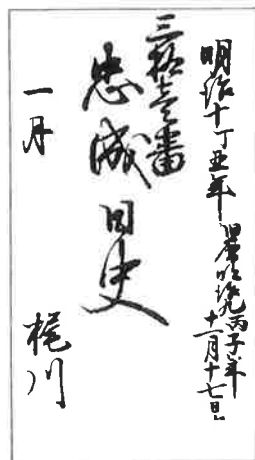 明治十丁丑年 旧暦明治九丙子年
十一月十七日
三拾壱番
忠誠日史
一月 梶川